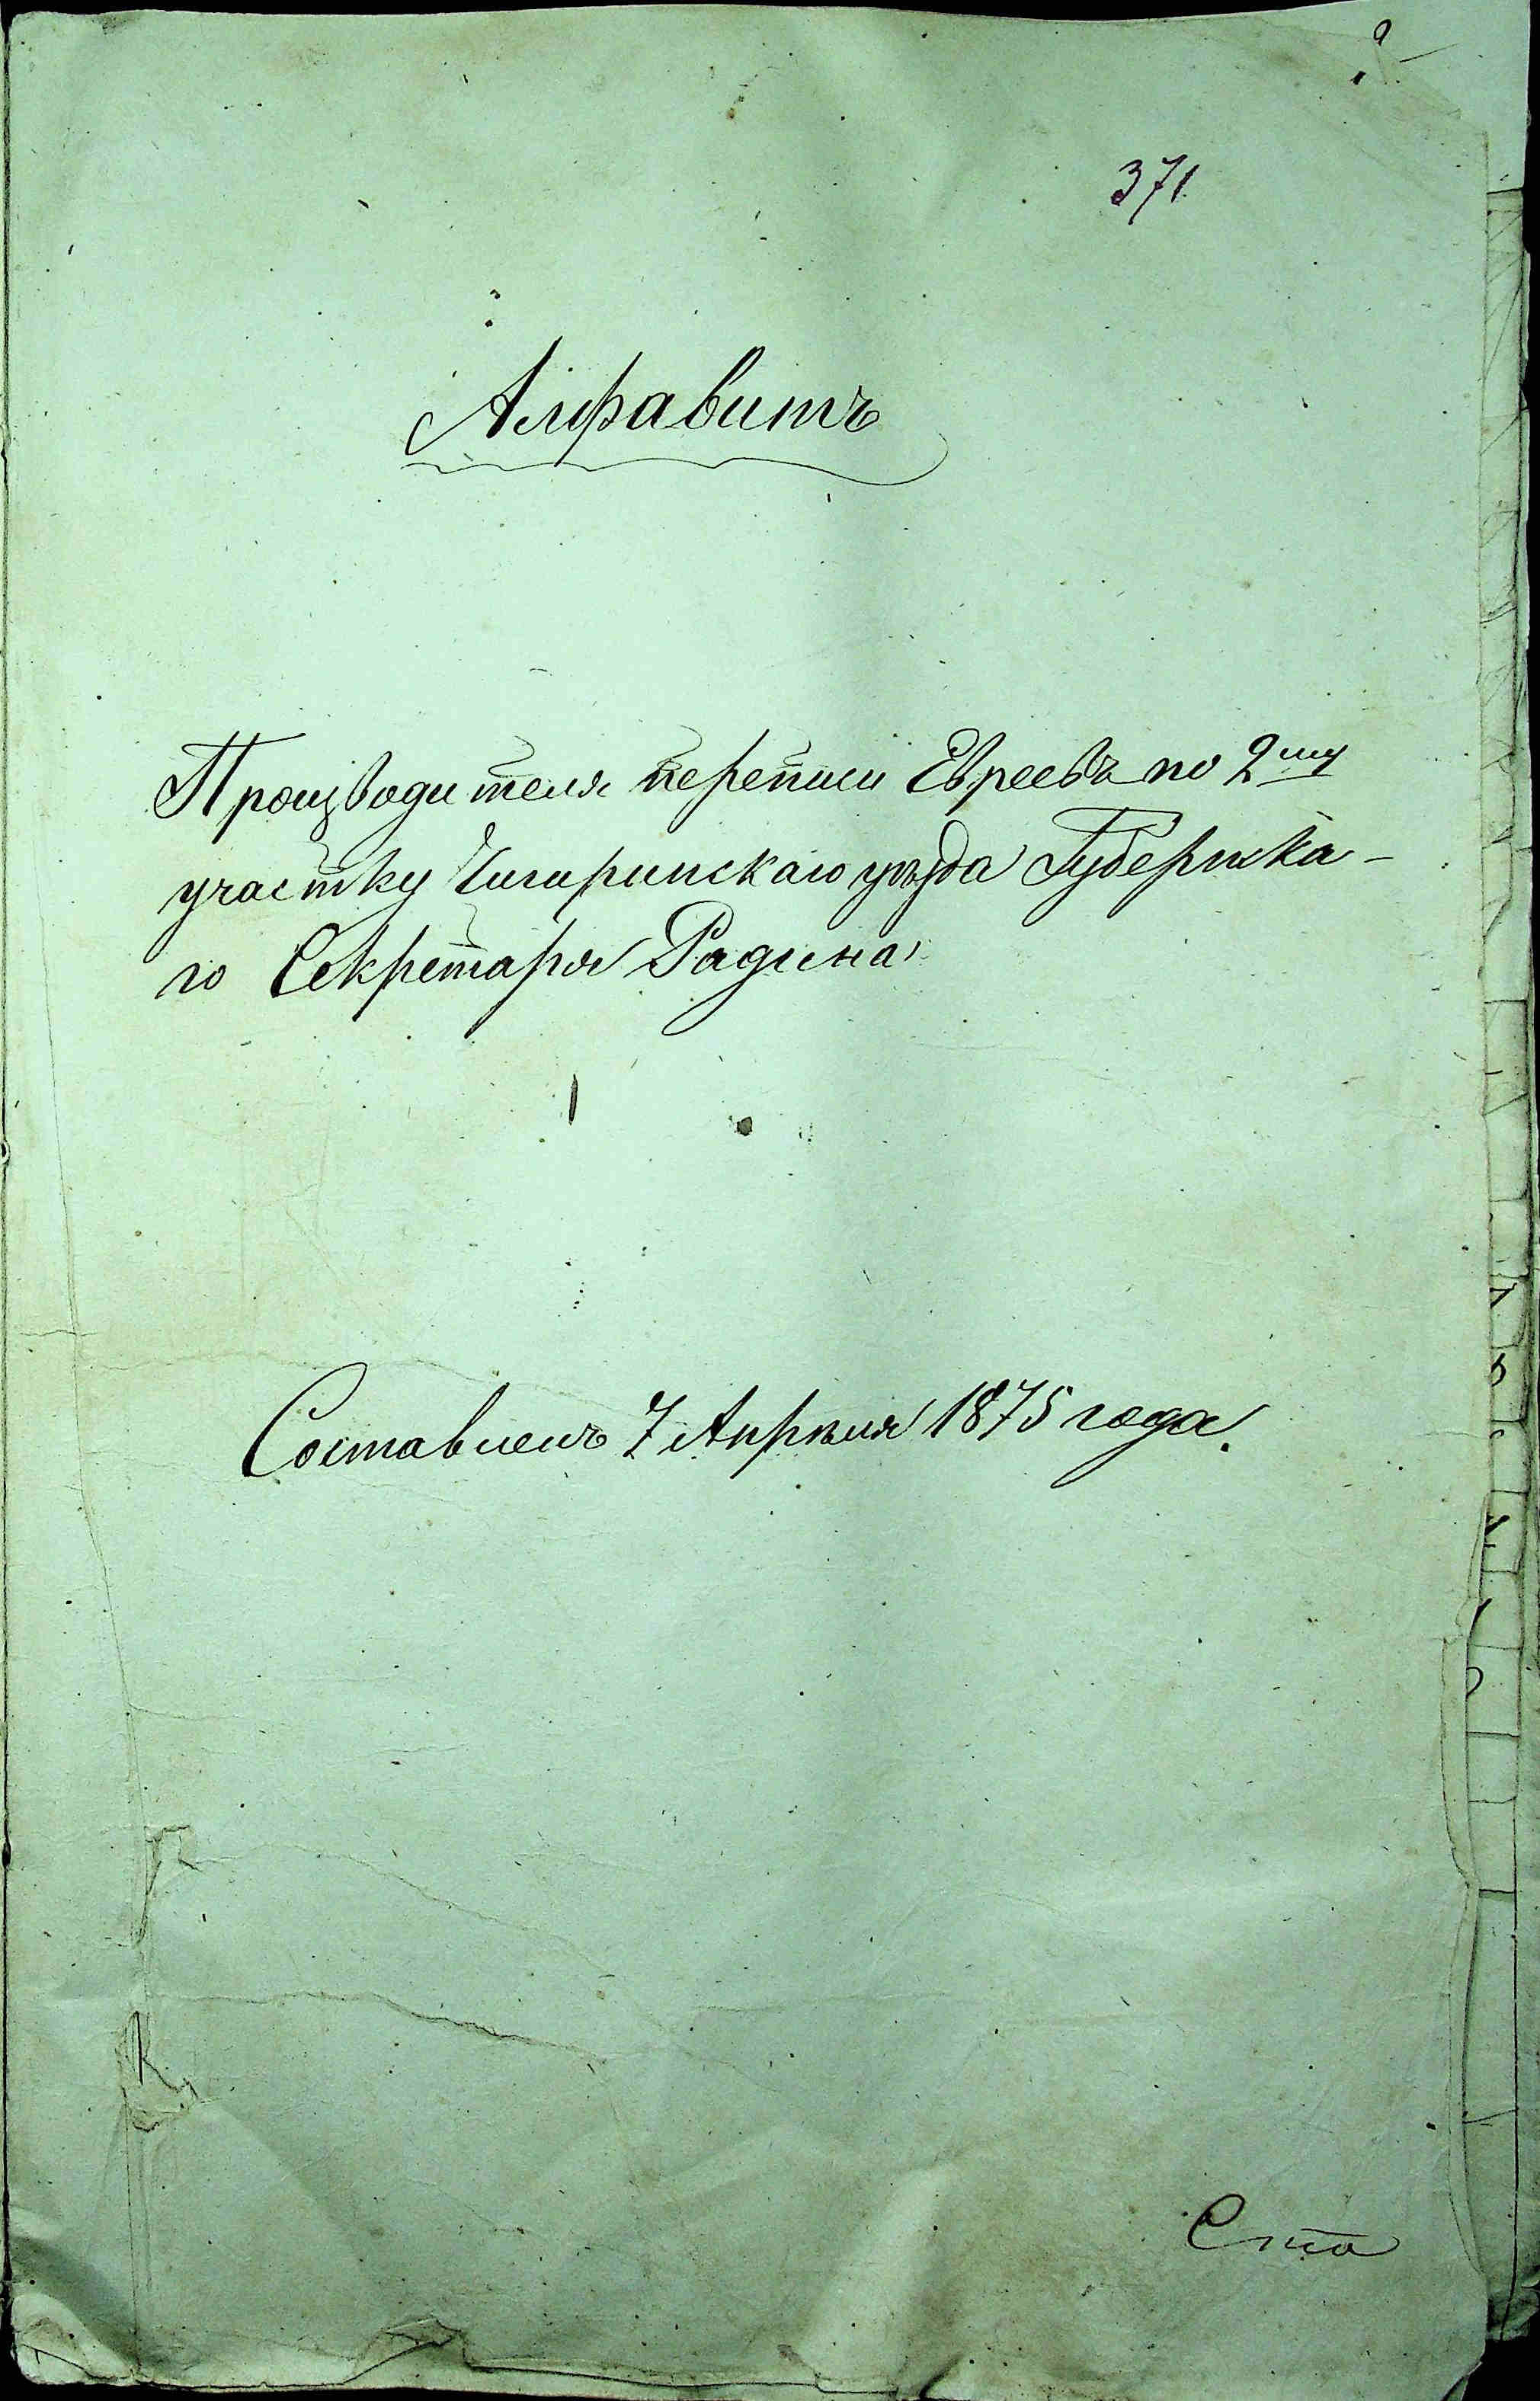 371
Алфавитъ
Производителя переписи Евреевъ по 2му
участку Чигиринскаго уѣзда Губернска-
го Секретаря Радина
Составленъ 7 Апрѣля 1875 года.